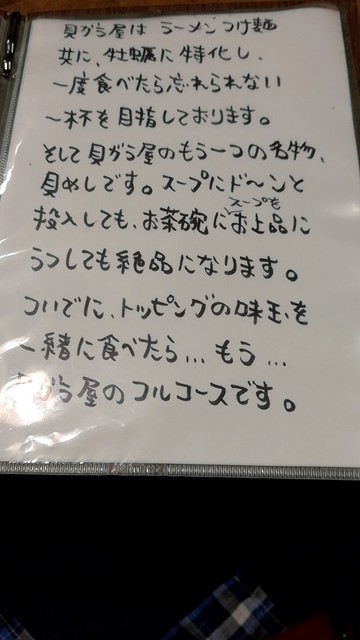 貝がら屋は ラーメンつけ麺
共に、牡蠣に特化し、
一度食べたら忘れられない
一杯を目指しております。
そして貝がら屋のもう一つの名物、
貝めしです。スープにド〜ンと
投入しても、お茶碗にスープをお上品に
うつしても絶品になります。
ついでに、トッピングの味玉を
一緒に食べたら…もう…
がら屋のフルコースです。